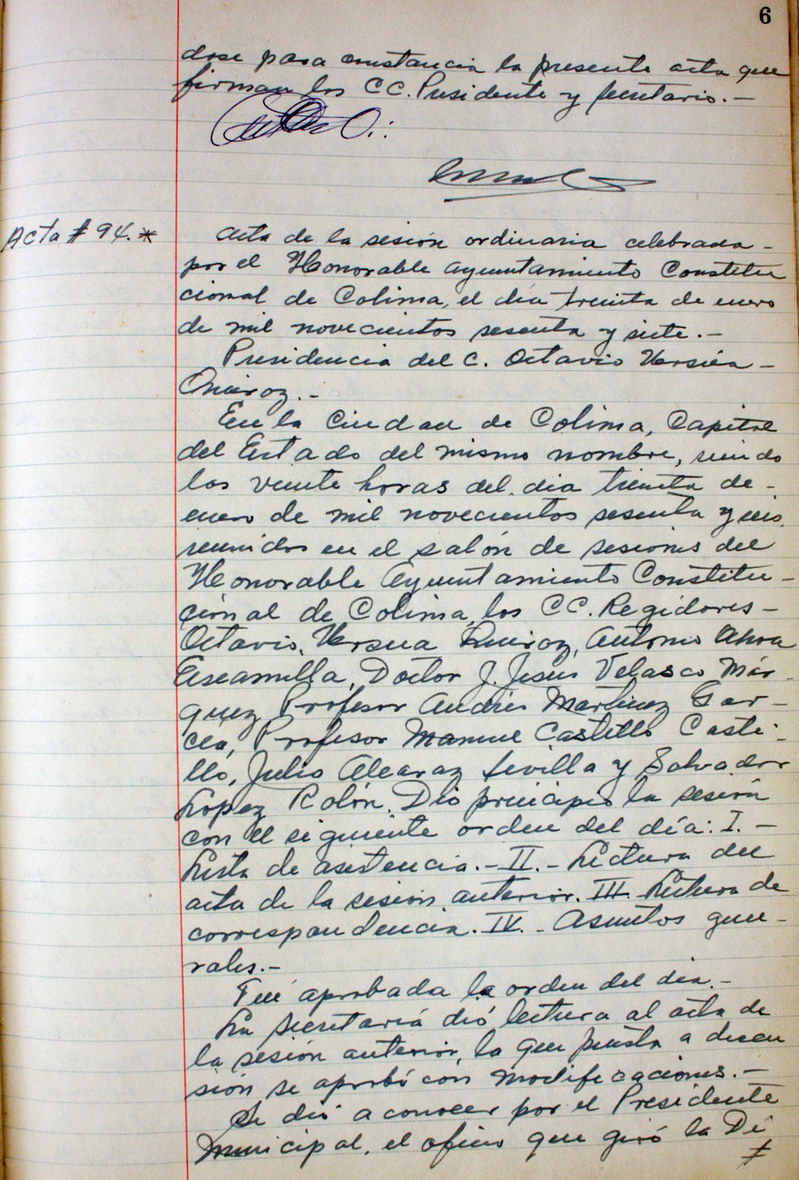 6
dose para constancia la presente acta que
firman los CC. Presidente y Secretario.-
Acta # 94. *
Acta de la sesión ordinaria celebrada-
por el Honorable Ayuntamiento Constitu
cional de Colima, el día treinta de enero
de mil novecientos sesenta y siete.-
Presidencia del C. Octavio
En la Ciudad de Colima, Capital
del Estado del mismo nombre, siendo
las veinte horas del día treinta de-
enero de mil novecientos sesenta y
reunidos en el salón de sesiones del
Honorable Ayuntamiento Constitu-
cional de Colima, los CC. Regidores-
Octavio, Antonio
Escamilla, Doctor J. Jesús Velasco Már-
quez Profesor Andrés Martínez Gar-
cía, Profesor Manuel Castillo Casti-
llo, Julio Alcaraz Sevilla y Salvador
López Rolón. Dió principio la sesión
con el siguiente orden del día: I.-
Lista de asistencia.- II.- Lectura del
acta de la sesión anterior. III Lectura de
correspondencia. IV.- Asuntos gene-
rales.-
Fué aprobada la orden del día.-
La Secretaría dió lectura al acta de
la sesión anterior, la que puesta a discu
sion se aprobó con modificaciones.-
Se dió a conocer por el Presidente
Municipal, el oficio que giró la Di
#